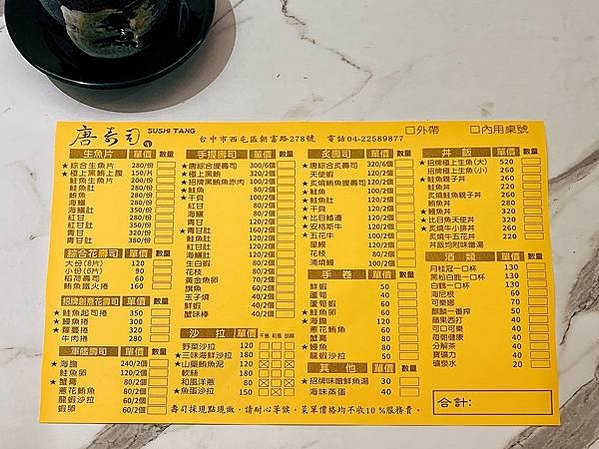 唐壽司 SUSHI TANG
台中市西屯區朝富路278號 電話04-22589877
□外帶 □內用桌號
生魚片 單價 數量
★綜合生魚片 280/份
★極上黑鮪上腹 150/片
鮭魚生魚片 200/份
鮭魚肚 280/份
鮪魚 280/份
海鱺 280/份
海鱺肚 350/份
紅甘 280/份
紅甘肚 350/份
青甘 320/份
青甘肚 380/份
綜合花壽司 單價 數量
大份(8片) 120
小份(6片) 90
稻荷壽司 60
鮪魚鐵火捲 160
招牌創意花壽司 單價 數量
★鮭魚起司捲 350
★鰻魚捲 300
★蘿蔓捲 300
牛肉捲 380
軍艦壽司 單價 數量
★海膽 240/2個
鮭魚卵 120/2個
★蟹膏 80/2個
蔥花鮪魚 80/2個
龍蝦沙拉 60/2個
蝦卵 60/2個
手握壽司 單價 數量
★唐綜合握壽司 300/6個
★極上黑鮪 180/2個
★招牌黑鮪魚赤肉 100/2個
鮭魚 80/2個
★干貝 100/2個
紅甘 80/2個
海鱺 80/2個
青甘 120/2個
★青甘肚 160/2個
鮭魚肚 120/2個
紅甘肚 120/2個
海鱺肚 120/2個
生白蝦 80/2個
花枝 80/2個
黃金魚卵 80/2個
旗魚 60/2個
玉子燒 40/2個
鮮蝦 60/2個
蟹味棒 40/2個
沙拉 單價
野菜沙拉 120
★三味海鮮沙拉 180
★山藥鮪魚泥 120
軟絲 180
和風洋蔥 80
★魚蛋沙拉 150
炙壽司 單價 數量
★唐綜合炙壽司 320/6個
天使蝦 120/2個
★炙燒鮪魚握壽司 120/2個
鮭魚 100/2個
★鮭魚肚 120/2個
★干貝 120/2個
★比目鰭邊 120/2個
★安格斯牛 120/2個
★五花牛 100/2個
星鰻 120/2個
花枝 100/2個
浦燒鰻 100/2個
手卷 單價 數量
鮮蝦 50
蘆筍 40
蘆筍蝦 60
★鮭魚卵 80
★海膽 120
蔥花鮪魚 60
★蟹膏 70
鰻魚 50
龍蝦沙拉 50
其他 單價 數量
★招牌味噌鮮魚湯 30
海味蒸蛋 40
丼飯 單價 數量
★招牌極上生魚(大) 520
招牌極上生魚(小) 260
★鮭魚親子丼 220
鮭魚丼 220
炙燒鮭魚親子丼 260
鮪魚丼 260
★鰻魚丼 320
★比目魚天使丼 320
★炙燒牛小排丼 260
★炙燒牛五花丼 220
丼飯均附味噌湯
酒類 單價 數量
月桂冠一口杯 130
黑松白鹿一口杯 130
白鶴一口杯 130
海尼根 60
可樂娜 70
麒麟一番搾 50
蘋果西打 40
可口可樂 40
每朝健康 40
分解茶 20
寶礦力 40
礦泉水 20
合計:
壽司採現點現做，請耐心等候，菜單價格均不收10%服務費。